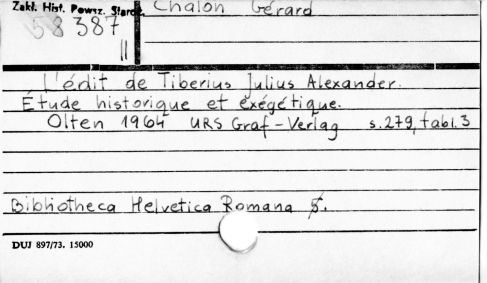 Zakł. Hist. Powsz. Staroż.
Chalon Gérard
58 387
II
L'édit de Tiberius Julius Alexander.
Étude historique et exégétique.
Olten 1964 URS Graf-Verlag s.279, tabl.3
Bibliotheca Helvetica Romana 5.
DUJ 897/73. 15000